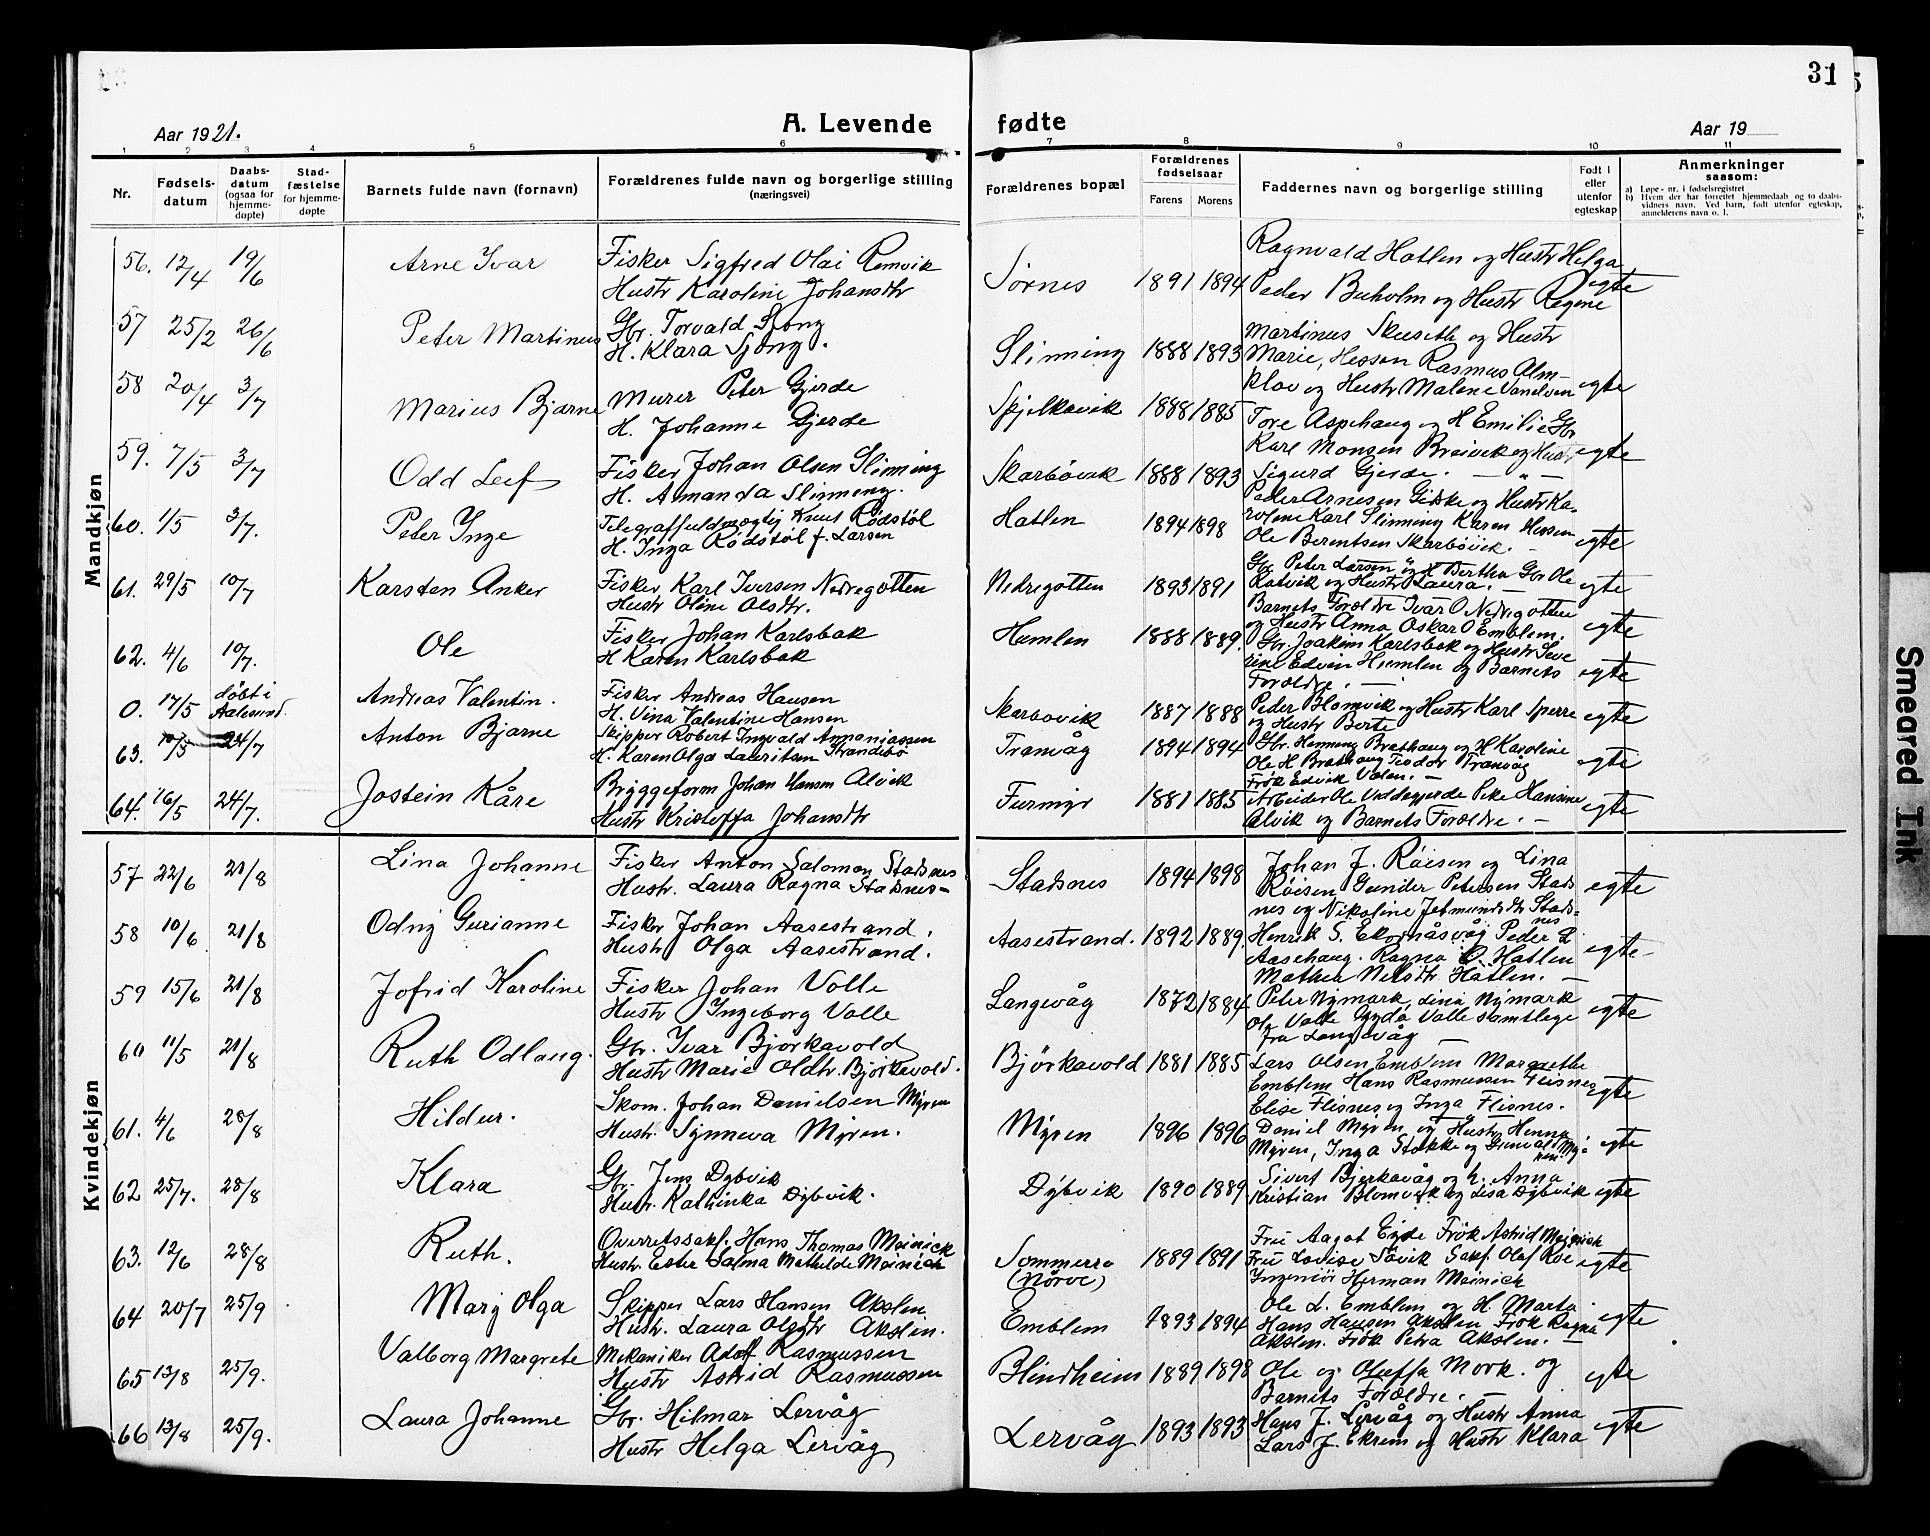 31
Aar 1921.
A. Levende
fødte
Aar 19
1 2 3 4 5 6 7 8 9 10 11
Nr.
Fødsels-
datum
Daabs-
datum
(ogsaa for
hjemme-
døpte)
Stad-
fæstelse
for hjemme-
døpte
Barnets fulde navn (fornavn)
Forældrenes fulde navn og borgerlige stilling
(næringsvei)
Forældrenes bopæl
Forældrenes
fødselsaar
Farens Morens
Faddernes navn og borgerlige stilling
Født i
eller
utenfor
egteskap
Anmerkninger
saasom:
a) Løpe-nr. i fødselsregistret
b) Hvem der har forrettet hjemmedaab og to daabs-
vidners navn. Ved barn, født utenfor egteskap,
anmelderens navn o. l.
Mandkjøn
56. 12/4 19/6 Arne Ivar
Fisker Sigfred Olai Remvik
Hustr Karoline Johansdtr
Sørnes 1891 1894
Ragnvald Hatlen og Hustr Helga
Peder Buholm og Hustr Regine
egte
57 25/2 26/6 Peter Martinus
Gbr. Torvald Sjong
H. Klara Sjong.
Slinning 1888 1893
Martinus Skuseth og Hustr
Marie, Hessen Rasmus Alm-
klov og Hustr Malene Vanelven
egte
58 20/4 3/7 Marius Bjarne
Murer Peter Gjerde
H. Johanne Gjerde
Spjelkavik 1888 1885
Tore Aspehaug og H Emilie Gbr
Karl Monsen Breivik og Hustr
egte
59. 7/5 3/7 Odd Leif
Fisker Johan Olsen Slinning
H. Amanda Slinning.
Skarbøvik 1888 1893
Sigurd Gjerde. — " —
Peder Arnesen Giske og Hustr Ka-
60. 1/5 3/7. Peter Inge
Telegraffuldmægtig Knut Rødstøl
H. Inga Rødstøl f. Larsen
Hatlen 1894 1898
roline Karl Slinning Karen Hessen
Ole Berentsen Skarbövik. —
egte
61. 29/5 10/7 Karsten Anker
Fisker Karl Iversen Nedregotten
Hustr Oline Olsdtr.
Nedregotten 1893 1891
Gbr Peter Larsen og H Bertha Gbr Ole
Ratvik og Hustr Laura. —
egte
62. 4/6 10/7. Ole
Fisker Johan Karlsbak
H Karen Karlsbak
Humlen 1888 1889.
Barnets Forældre Ivar O Nedregotten
og Hustr Anna Oskar O Emblem.
egte
Gbr Joakim Karlsbak og Hustr Seve
rine Edvin Humlen og Barnets
Forældre. —
egte
0. 17/5 døbt i
Aalesund.
Andreas Valentin.
Fisker Andreas Hansen
H. Vina Valentine Hansen
Skarbovik 1887 1888
Peder Blomvik og Hustr Karl Sperre
og Hustr Berte
egte
63. 10/5 24/7 Anton Bjarne
Skipper Robert Ingvald Ananiassen
H. Karen Olga Lauritsen Strandebö
Tranvåg 1894 1894
Gbr. Henning Brathaug og H Karoline
Ole H Brathaug Teodor Tranvåg
Frøk Edvik Valen. —
egte
64. 16/5 24/7. Jostein Kåre
Bryggeform Johan Hansen Alvik
Hustr Kristoffa Johansdtr
Furmyr 1881 1885
Arbeider Ole Veddegjerde Peke Hansine
Alvik og Barnets Forældre. —
egte
Kvindekjøn
57 22/6 21/8 Lina Johanne
Fisker Anton Salomon Stadsnes
Hustr. Laura Ragna Stadsnes -
Stadsnes 1894 1898
Johan J. Röisen og Lina
Röisen Gunder Petersen Stads
nes og Nikoline Jetmundsdtr Stads-
nes
egte
58 10/6 21/8 Odny Gurianne
Fisker Johan Aasestrand.
Hustr Olga Aasestrand.
Aasestrand. 1892 1889.
Henrik S. Ekornåsvåg Peder L
Aasehaug. Ragna O. Hatlen
Mathea Nelsdtr Hatlen. —
egte -
59 15/6 21/8 Jofrid Karoline
Fisker Johan Volle
Hustr Ingeborg Valle
Langevåg 1872 1884
Peter Nymark, Lina Nymark
Ole Valle Gyda Valle samtlege
fra Langevåg —
egte
60 11/5 21/8 Ruth Odlaug.
Gbr. Ivar Bjørkavold
Hustr Marie Oldtr. Bjørkavold.
Björkavold 1881 1885
Lars Olsen Emblem Margrethe
Emblem Hans Rasmussen Flisnes
Elise Flisnes og Inga Flisnes.
egte
61. 4/6 28/8 Hildur.
Skom. Johan Danielsen Myren
Hustr. Synneva Myren.
Myren 1896 1896
Daniel Myren og Hustr Hanna
Myren, Inga Stokke og Gunvald My-
ren.
egte
62 25/7. 28/8 Klara
Gbr. Jens Dybvik
Hustr. Kathinka Dybvik.
Dybvik 1890 1889
Sivert Bjerkavåg og h. Anna
Kristian Blomvik og Lisa Dybvik
egte
63. 12/6 28/8 Ruth.
Overretssakf. Hans Thomas Meinick
Hustr. Ester Salma Mathilde Meinich
Sommerro
(Nörve) 1889 1891
Fru Aagot Eyde Frøk Astrid Meinich
Fru Lovise Sövik Sakf Olaf Roe
Ingeniör Herman Meinick
egte
64 20/7 25/9 Mary Olga
Skipper Lars Hansen Akslen
Hustr. Laura Olsdtr Akslen.
Emblem 1893 1894
Ole L. Emblem og H. Marta
Hans Hansen Akslen Frøk Ragna
Akslen. Frøk Petra Akslen. —
egte
65 13/8 25/9. Valborg Margrete
Mekaniker Adolf Rasmussen
Hustr Astrid Rasmussen
Blindheim 1889 1898
Ole og Oluffa Mork. og
Barnets Forældre. —
egte
66 13/8 25/9. Laura Johanne
Gbr. Hilmar Lervåg
Hustr Helga Lervåg
Lervåg 1893 1893
Hans J. Lervåg og Hustr Anna
Lars J. Ekrem og Hustr Klara
egte
Smeared Ink